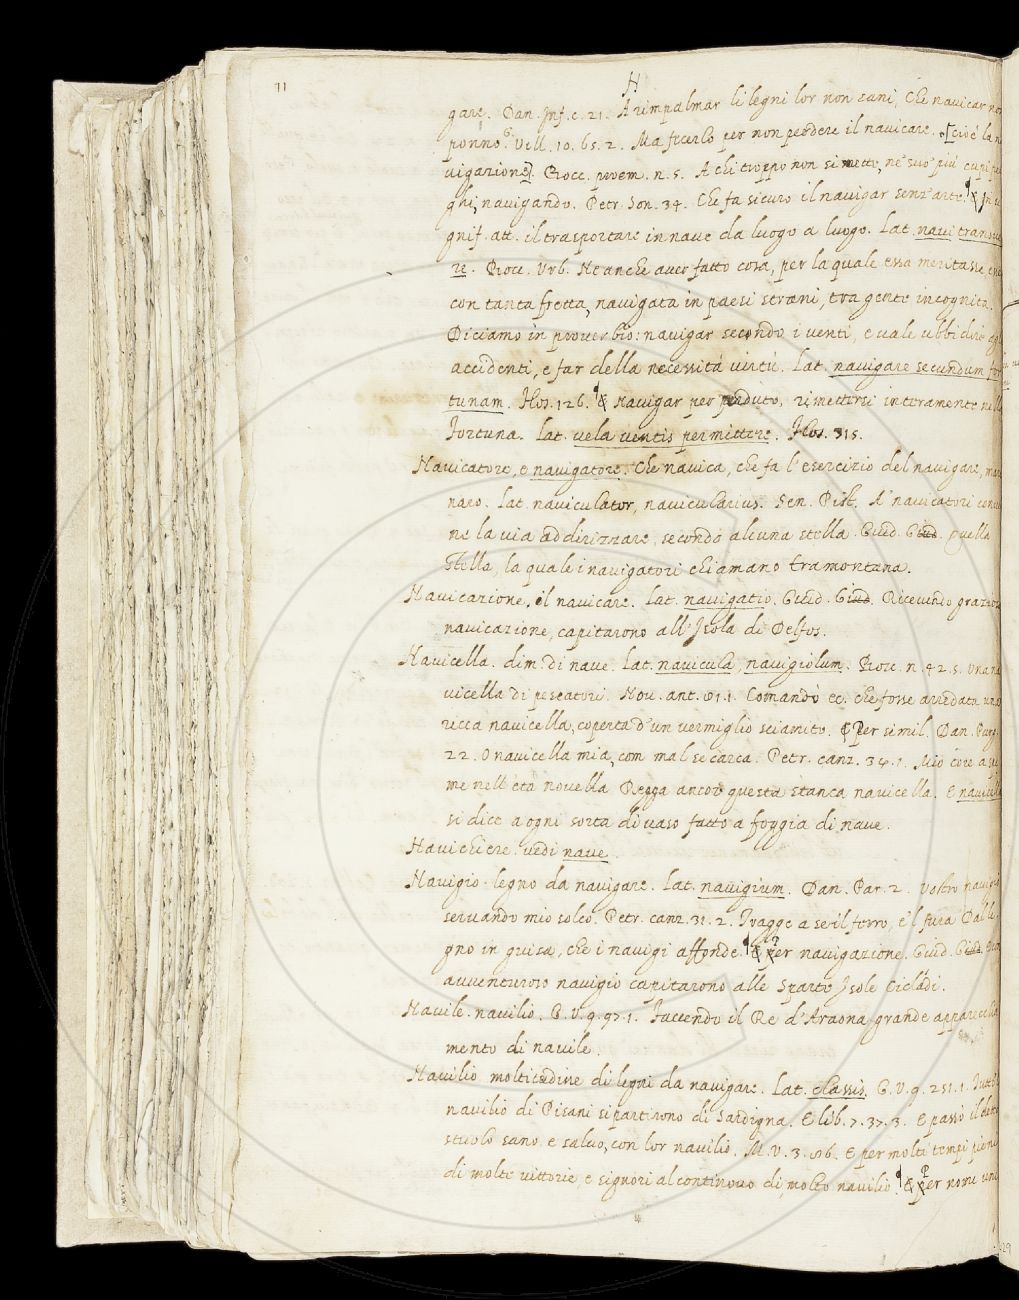 11
N
gare. Dan. Inf. c. 21. A rimpalmar li legni lor non sani, Che navicar non
ponno. G. Vill. 10. 65. 2. Ma fecerlo per non perdere il navicare. [cioè la na
vigazione]. Bocc. proem. n. 5. A chi troppo non si mette, ne' suoi più cupi pela
ghi, navigando. Petr. Son. 34. Che fa sicuro il navigar senz' arte. ¶ & In si
gnif. att. il trasportare in nave da luogo a luogo. Lat. navi
re. Bocc. Urb. Ne anche aver fatto cosa, per la quale essa meritasse,
con tanta fretta, navigata in paesi strani, tra gente incognita.
Diciamo in proverbio: navigar secondo i venti, e vale ubbidire agli
accidenti, e far della necessità virtù. Lat. navigare secundum for
tunam. Flos. 126. ¶ & Navigar per perduto, rimettersi interamente nella
fortuna. Lat. vela ventis permittere. Flos. 315.
Navicatore, e navigatore. Che navica, che fa l' esercizio del navigare, mari
naro. Lat. naviculator, navicularius. Sen. Pist. A' navicatori convie
ne la via addirizzare, secondo alcuna stella. Guid. Giud. quella
stella, la quale i navigatori chiamano tramontana.
Navicazione. il navicare. Lat. navigatio. Guid. Giud. Ricevendo graziosa
navicazione, capitarono all' Isola di Delfos.
Navicella. dim. di nave. Lat. navicula, navigiolum. Bocc. n. 42. 5. Una na
vicella di pescatori. Nov. ant. 81. 1. Comandò ec. che fosse arredata una
ricca navicella, coperta d' un vermiglio sciamito. & Per simil. Dan. Purg.
22. O navicella mia, com mal se' carca. Petr. canz. 34. 1. Mio core
me nell' età novella Regga ancor questa stanca navicella. E navicella
si dice a ogni sorta di vaso fatto a foggia di nave.
Navichiere. vedi nave.
Navigio. legno da navigare. Lat. navigium. Dan. Par. 2. Vostro navigio
servando mio solco. Petr. canz. 31. 2. Tragge a se il ferro, e 'l fura Dal le
gno in guisa, che i navigi affonde. ¶ & Per navigazione. Guid. Giud.
avventuroso navigio capitarono alle Sparte Isole Cicladi.
Navile. navilio. G. V. 9. 97. 1. Faccendo il Re d' Araona grande apparecchia
mento di navile.
Navilio. moltitudine di legni da navigare. Lat. classis. G. V. 9. 251. 1. Tutto 'l
navilio di Pisani si partirono di Sardigna. E lib. 7. 37. 3. E passò il detto
stuolo sano, e salvo, con lor navilio. M. V. 3. 86. E per molti tempi pieni
di molte vittorie, e signori al continovo di molto navilio. ¶ & Per nome uni